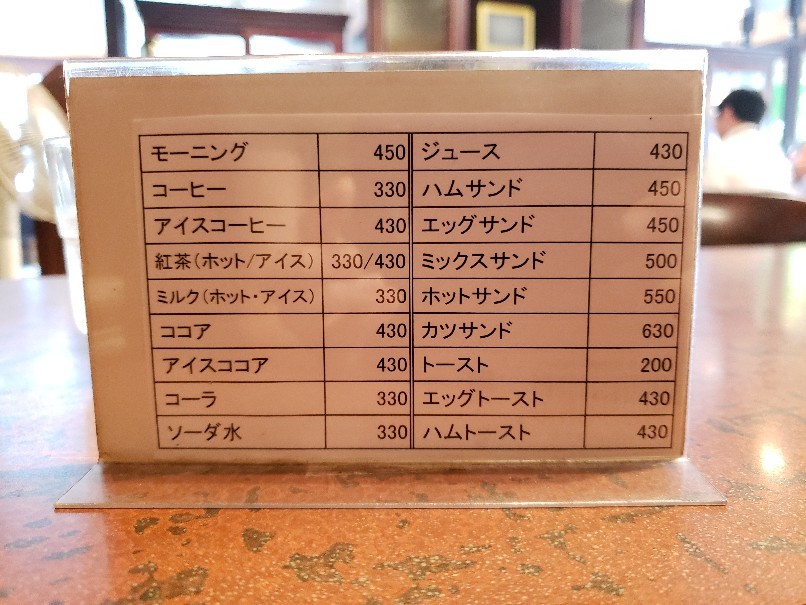 モーニング 450
コーヒー 330
アイスコーヒー 430
紅茶(ホット/アイス) 330/430
ミルク(ホット・アイス) 330
ココア 430
アイスココア 430
コーラ 330
ソーダ水 330
ジュース 430
ハムサンド 450
エッグサンド 450
ミックスサンド 500
ホットサンド 550
カツサンド 630
トースト 200
エッグトースト 430
ハムトースト 430